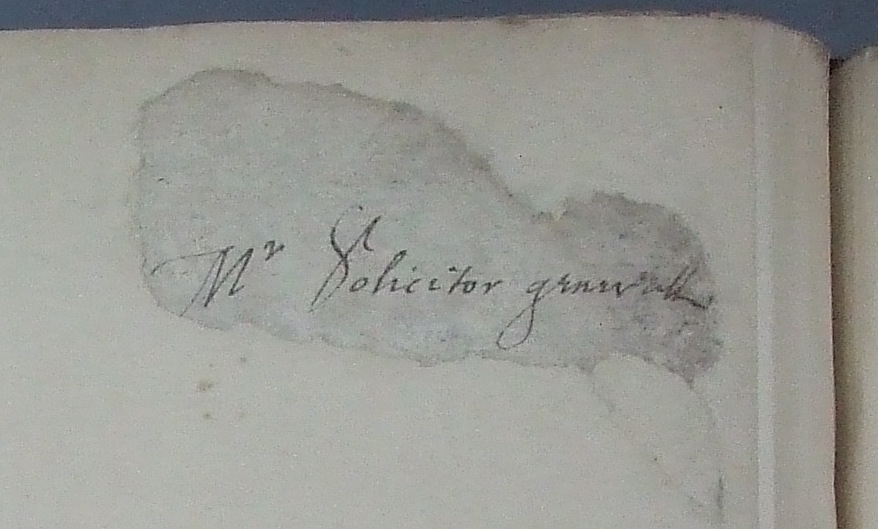 Mr Solicitor generall